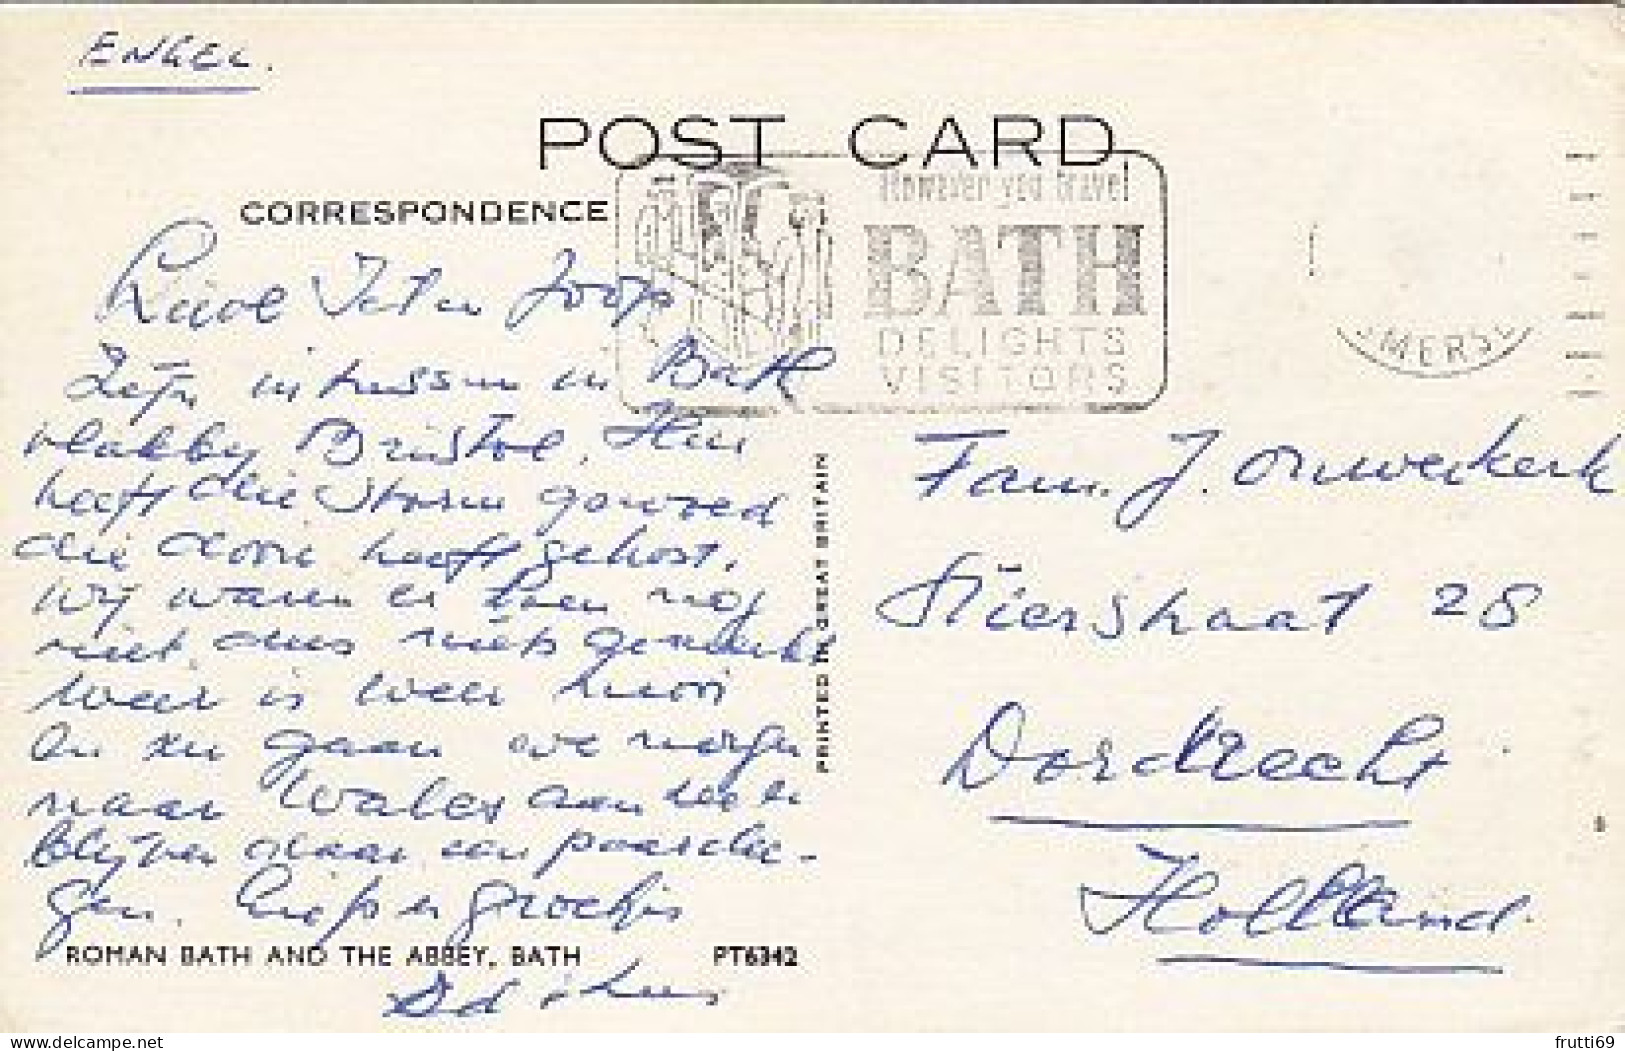 ENGEL.
POST CARD
However you travel
BATH
DELIGHTS
VISITORS
MERS
CORRESPONDENCE
Lieve en Joop
Zijn intussen in Bath
vlakby Bristol. Hier
heeft die storm gewoed
die door heeft gehost,
wij waren er toen nog
niet, dus niets gemerkt
weer is weer mooi
en nu gaan we morgen
naar Wales aan zee en
blijven daar een paar da-
gen. liefs en groetjes
Fam. J. Ouwerkerk
Stierstraat 28
Dordrecht
Holland.
PRINTED IN GREAT BRITAIN
ROMAN BATH AND THE ABBEY, BATH PT6342
www.delcampe.net
frutti69